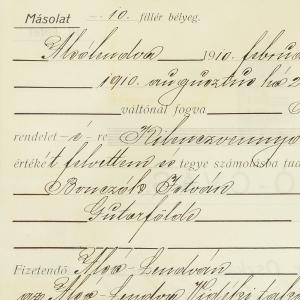 Másolat – 10. fillér bélyeg.
Alsólendva 1910. februá
1910. augusztus hó 2
váltónál fogva
rendelet –é– re Kilenczvennyo
értékét felvettem s tegye számolásba tud
Bonczák István
Guterfölde
Fizetendő Alsó-Lendván
az Alsó-Lendva Vidéki taka